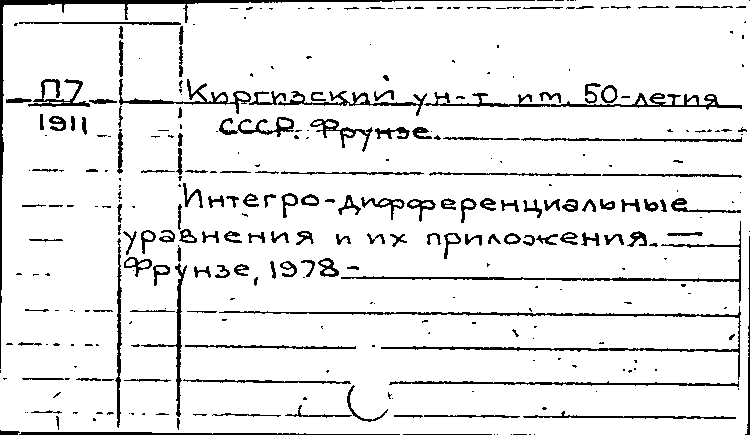 П7 Киргизский ун-т им. 50-летия
1911 СССР. Фрунзе.
Интегро-дифференциальные
уравнения и их приложения. —
Фрунзе, 1978 -